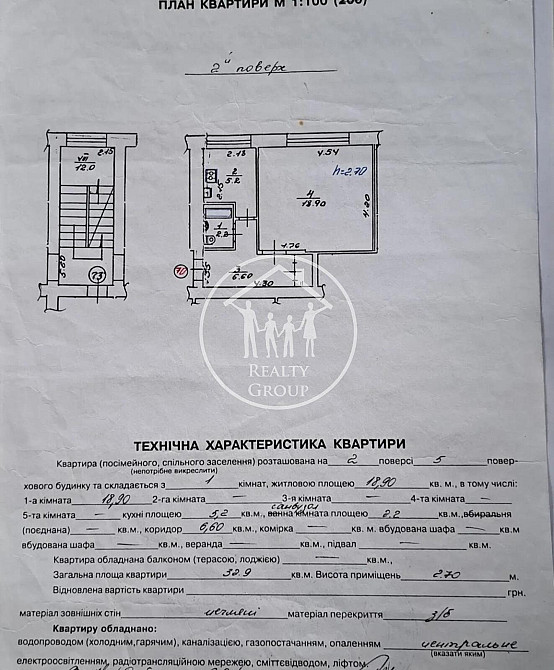 ПЛАН КВАРТИРИ М 1:100 (200)
2й поверх
VII
12.0
2.15
5.80
73
2.18
2
5.2
4.54
h=2.70
4
18.90
1
2.2
4.76
70
3
6.60
4.30
REALTY
GROUP
ТЕХНІЧНА ХАРАКТЕРИСТИКА КВАРТИРИ
Квартира (посімейного, спільного заселення) розташована на 2 поверсі 5 повер-
(непотрібне викреслити)
хового будинку та складається з 1 кімнат, житловою площею 18,90 кв. м., в тому числі:
1-а кімната 18,90 2-га кімната — 3-я кімната — 4-та кімната —
санвузол
5-та кімната кухні площею 5,2 кв.м., ванна кімната площею 2.2 кв.м.,вбиральня
(поєднана) — кв.м., коридор 6,60 кв.м., комірка — кв. м. вбудована шафа — кв.м
вбудована шафа — кв.м., веранда — кв.м., підвал — кв.м.
Квартира обладнана балконом (терасою, лоджією) — кв.м.,
Загальна площа квартири 32.9 кв.м. Висота приміщень 2.70 м.
Відновлена вартість квартири грн.
матеріал зовнішніх стін цегляні матеріал перекриття з/б
Квартиру обладнано:
водопроводом (холодним,гарячим), каналізацією, газопостачанням, опаленням центральне
(вказати яким)
електроосвітленням, радіотрансляційною мережею, сміттєвідводом, ліфтом